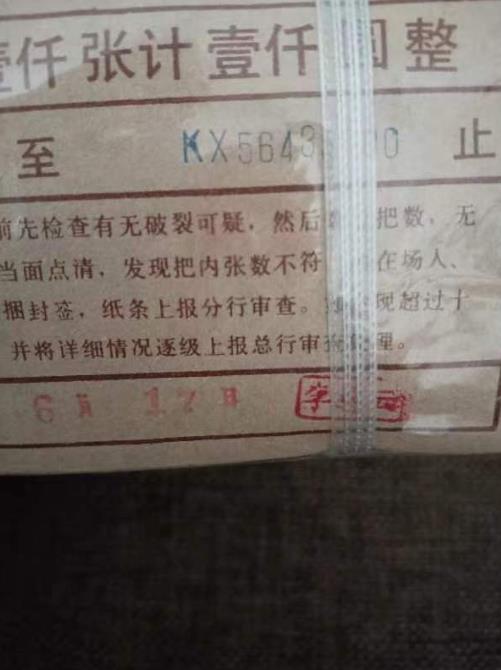 壹仟张计壹仟圆整
至 KX5643 00 止
前先检查有无破裂可疑，然后 把数，无
当面点清，发现把内张数不符 在场人、
捆封签，纸条上报分行审查。 现超过十
并将详细情况逐级上报总行审查 理。
6月 17日
李